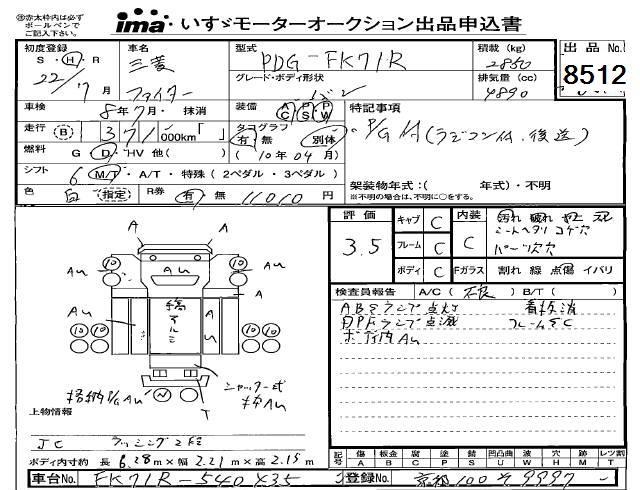 ※赤太枠内は必ず
ボールペンで
ご記入下さい。
ima いすゞモーターオークション出品申込書
初度登録 S・H・R 22/7月
車名 三菱 ファイター
型式 PDG-FK71R
グレード・ボディ形状 バン
積載 (kg) 2850
排気量 (cc) 4890
出品No. 8512
車検 8年7月・抹消
装備 A/C P/S P/W
走行 (B) 371,000km「 」
タコグラフ 有・無 別体 (10年04月)
燃料 G・D・HV 他( )
シフト 6 M/T・A/T・特殊(2ペダル・3ペダル)
色 白 指定 R券 有・無 11010円
特記事項
P/G付(ラジコン付、後送)
架装物年式:( 年式)・不明
※不明の場合は、不明に○をする。
評価 3.5
キャブ C
フレーム C
ボディ C
内装 C
Fガラス 割れ 線 点傷 イバリ
汚れ 破れ
シートヘタリ コゲ穴
パーツ欠穴
A
A
AU
AU
AU
A
AU
AU
縞アルミ
AU
T
シャッター式
格納P/G AU
検査員報告 A/C(不良) B/T( )
ABSランプ点灯 看板消
DPFランプ点滅 フレームSC
ボディ内AU
上物情報
JC ラッシング2段
ボディ内寸約 長 6.28m×幅 2.21m×高 2.15m
記号 傷 A 板金 B 腐 C 塗 P 錆 S 凹凸曲 U 波 W 穴 H 跡 M レツ割 T
車台No. FK71R-540×35
登録No. 京都 100 そ 9997